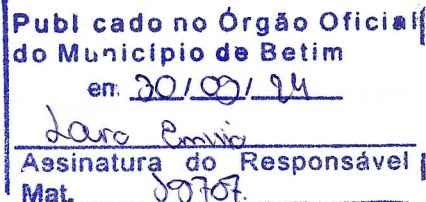 Publ cado no Órgão Oficial
do Município de Betim
em 30/09/24
Assinatura do Responsável
Mat.